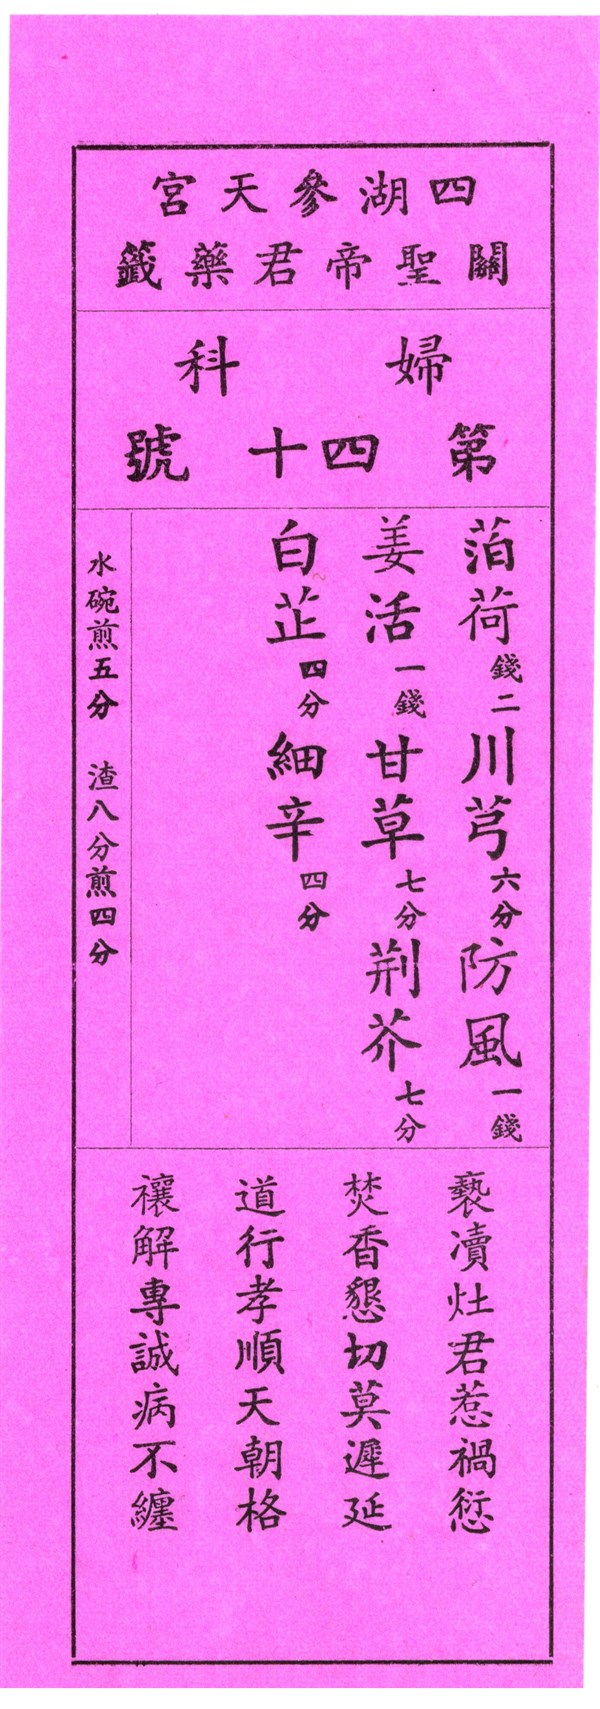 四湖參天宮
關聖帝君藥籤
婦科
第四十號
萡荷錢二川芎六分防風一錢
姜活一錢甘草七分荆芥七分
白芷四分細辛四分
水碗煎五分 渣八分煎四分
褻凟灶君惹禍愆
焚香懇切莫遲延
道行孝順天朝格
禳解專誠病不纏